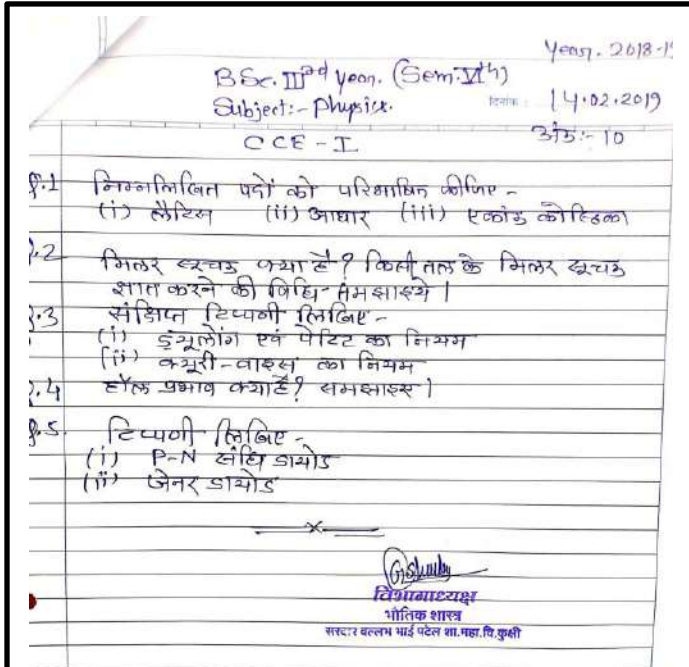 Year. 2018-19
BSc. IIIrd year. (Sem. VIth)
Subject:- Physics. दिनांक 14.02.2019
CCE-I अंक:- 10
Q.1 निम्नलिखित पदों को परिभाषित कीजिए -
(i) लैटिस (ii) आधार (iii) एकांक कोष्ठिका
Q.2 मिलर सूचक क्या है? किसी तल के मिलर सूचक
ज्ञात करने की विधि समझाइये।
Q.3 संक्षिप्त टिप्पणी लिखिए -
(i) ड्यूलोंग एवं पेटिट का नियम
(ii) क्यूरी-वाइस का नियम
Q.4 हॉल प्रभाव क्या है? समझाइए।
Q.5. टिप्पणी लिखिए -
(i) P-N संधि डायोड
(ii) जेनर डायोड
विभागाध्यक्ष
भौतिक शास्त्र
सरदार वल्लभ भाई पटेल शा.महा.वि.कुक्षी